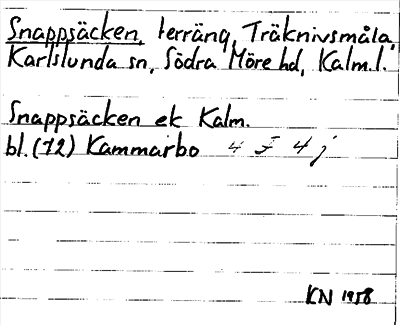 Snappsäcken, terräng, Träknivsmåla,
Karlslunda sn, Södra Möre hd, Kalm.l.
Snappsäcken ek Kalm.
bl. (72) Kammarbo 4 F 4 j
KN 1958